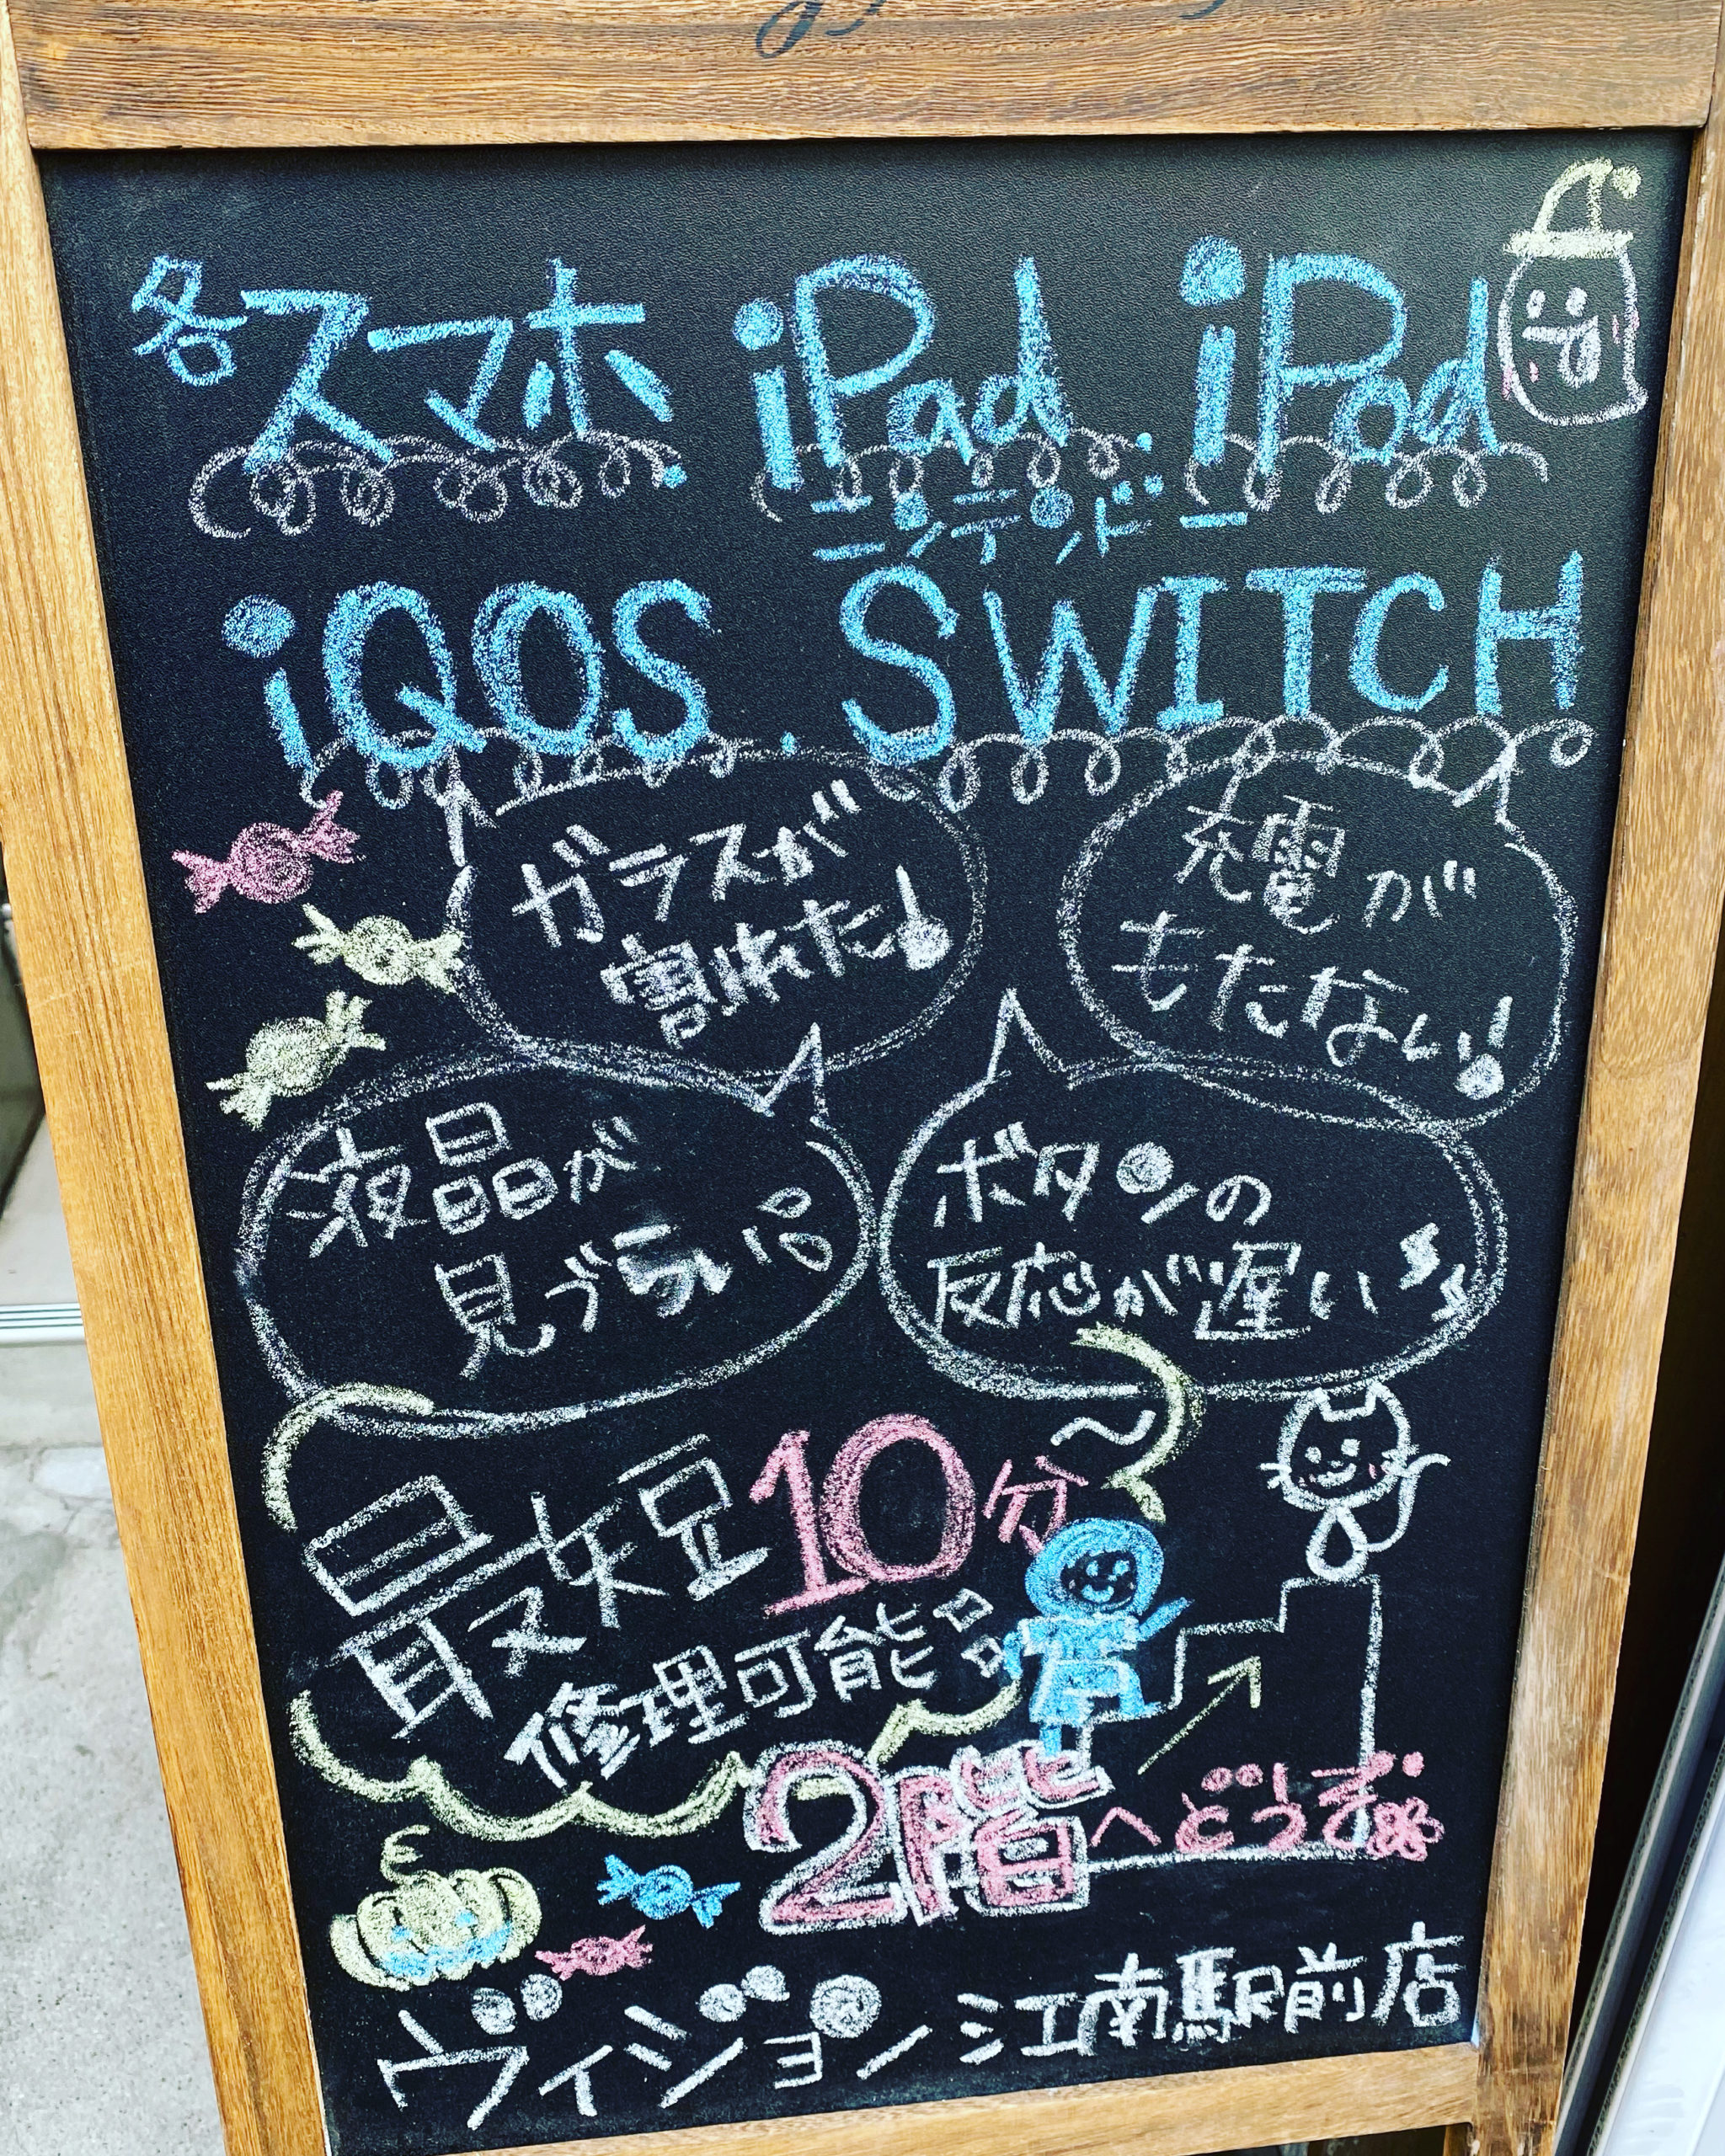 各スマホ.iPad.iPod
ニンテンドー
iQOS.SWITCH
ガラスが
割れた!
充電が
もたない!
液晶が
見づらい
ボタンの
反応が遅い
最短10分〜
修理可能品
2階へどうぞ
ヴィジョン江南駅前店